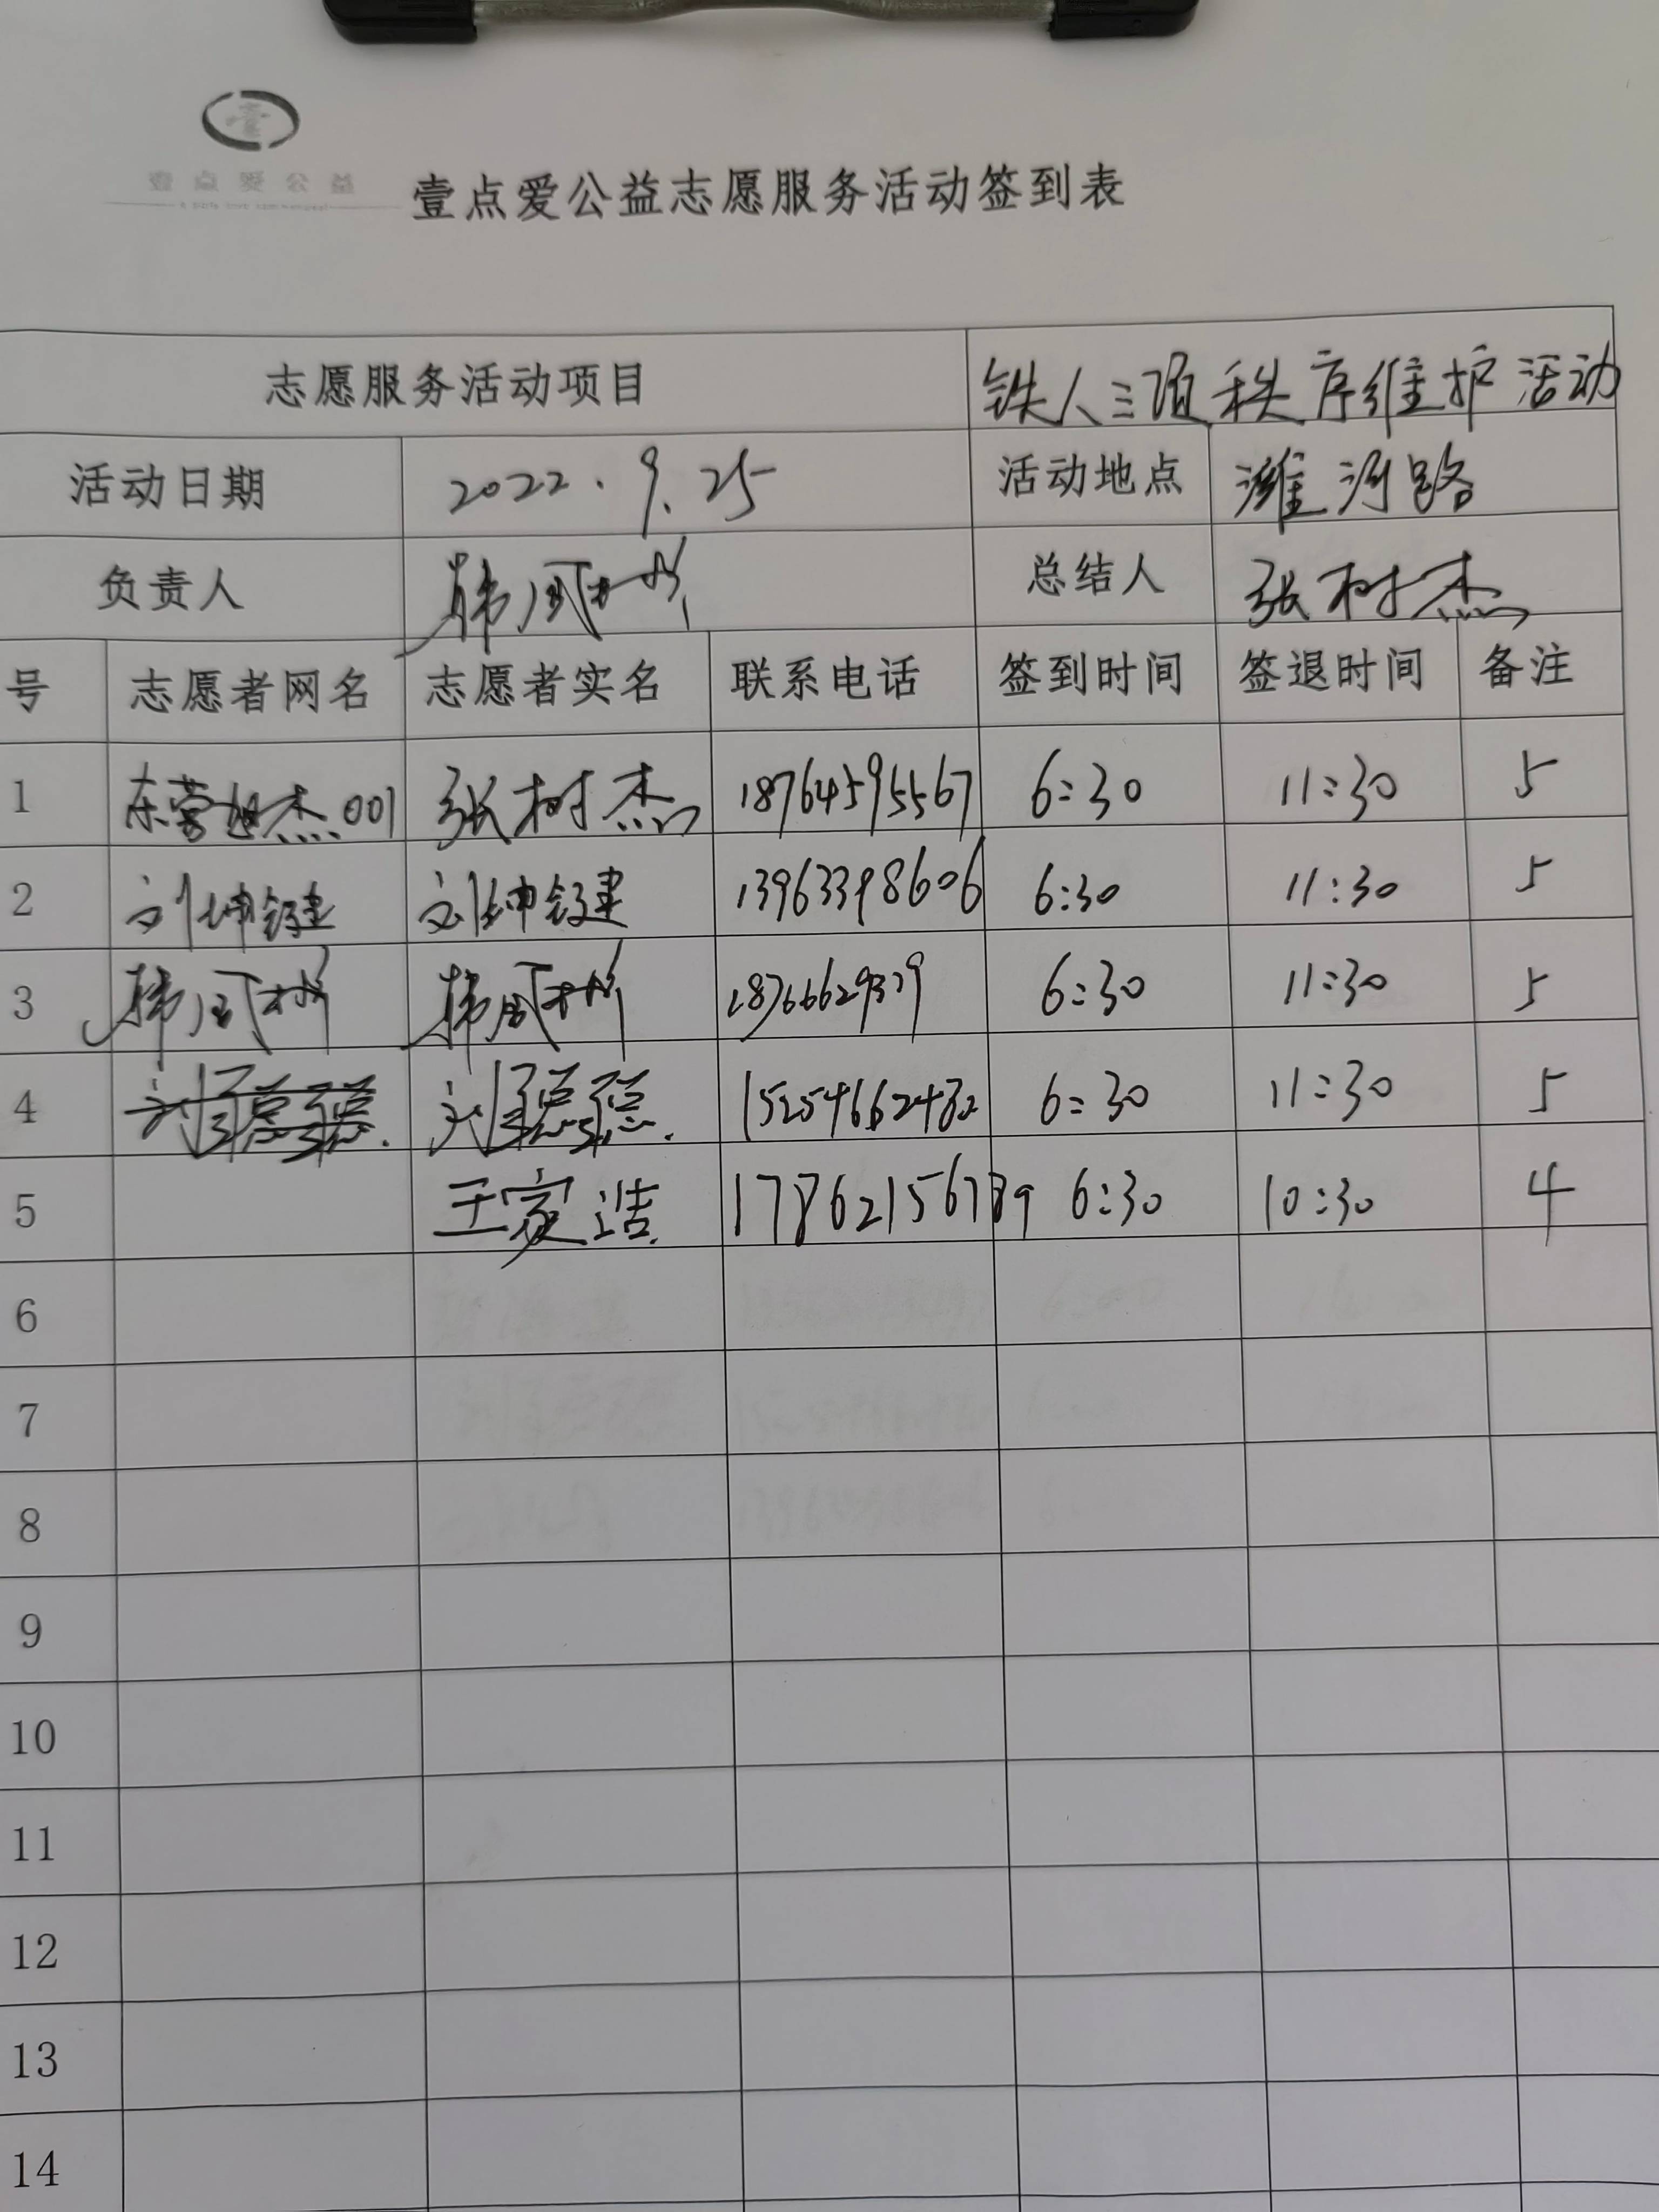 壹点爱公益
壹点爱公益志愿服务活动签到表
志愿服务活动项目 铁人三项秩序维护活动
活动日期 2022.9.25 活动地点 潍河路
负责人 韩风彬 总结人 张树杰
号 志愿者网名 志愿者实名 联系电话 签到时间 签退时间 备注
1 东营旭杰001 张树杰 18764595567 6:30 11:30 5
2 刘坤键 刘坤键 13963398606 6:30 11:30 5
3 6:30 11:30 5
4 15254662482 6:30 11:30 5
5 王家浩 17862156789 6:30 10:30 4
6
7
8
9
10
11
12
13
14